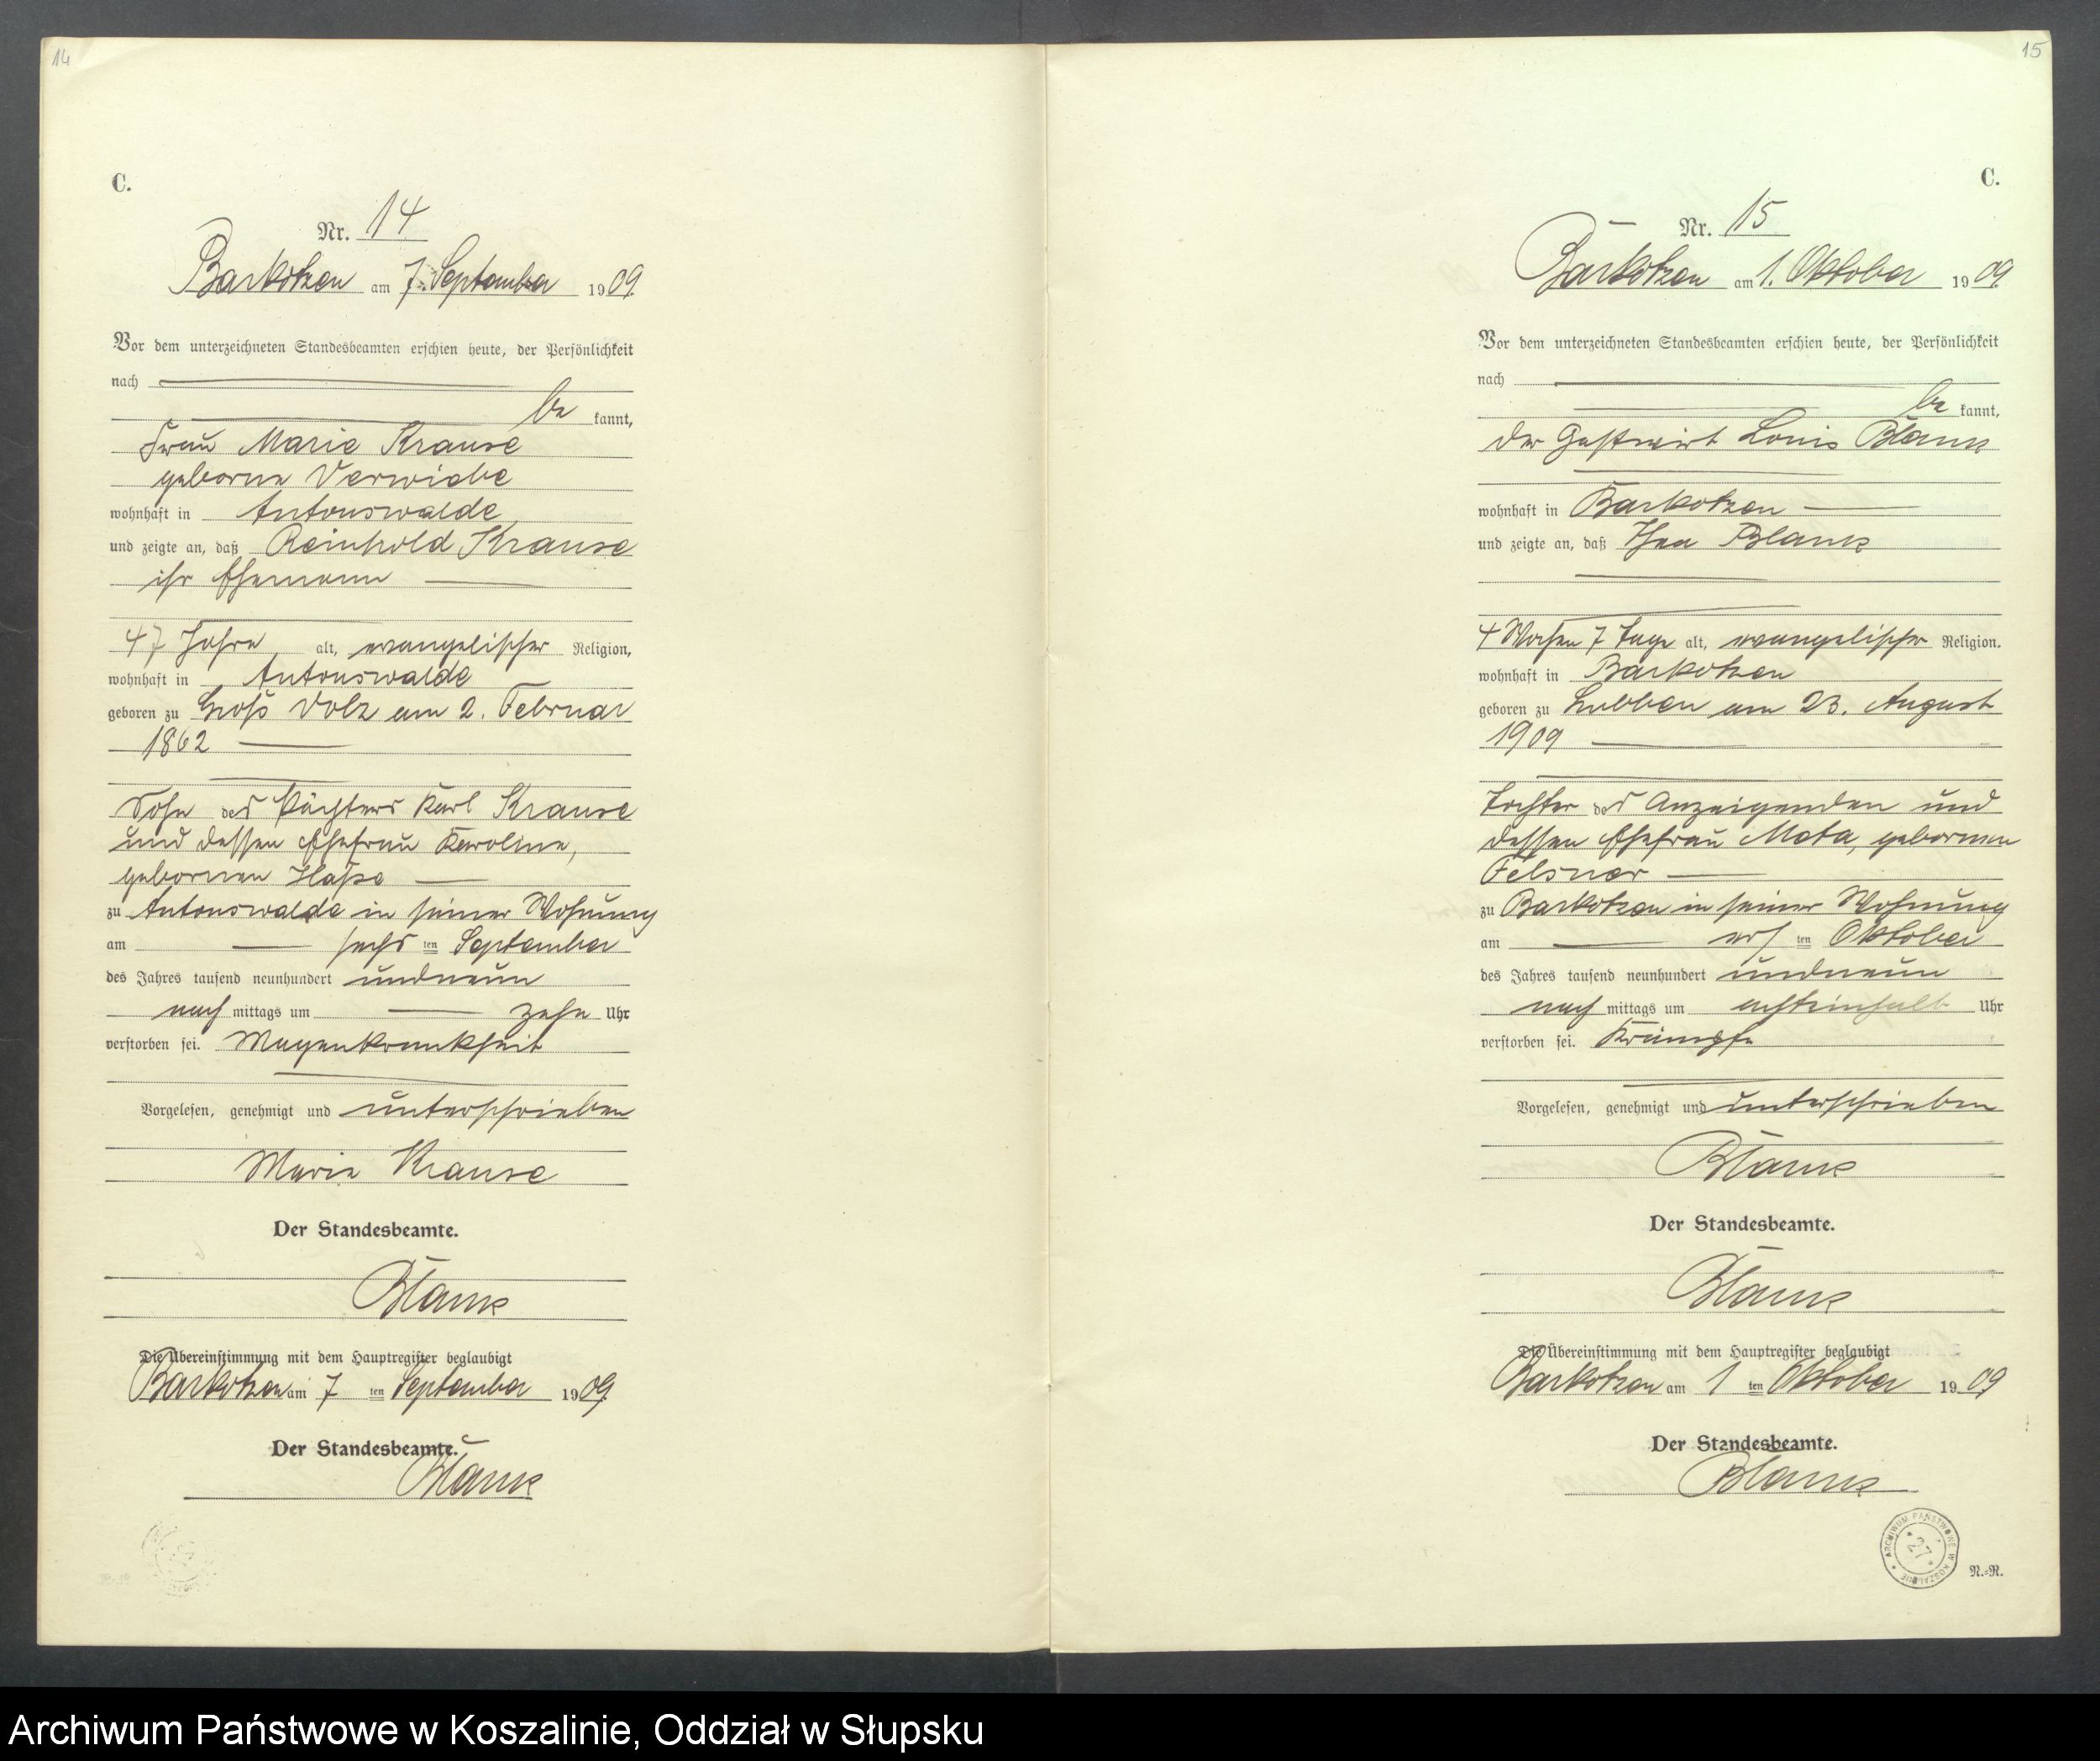 14
C.
Nr. 14
Barkotzen am 7. September 1909.
Vor dem unterzeichneten Standesbeamten erschien heute, der Persönlichkeit
nach
be kannt,
Frau Marie Krause
geborne Verwiebe
wohnhaft in Antonswalde
und zeigte an, daß Reinhold Krause
ihr Ehemann
47 Jahre alt, evangelischer Religion,
wohnhaft in Antonswalde
geboren zu Groß Volz am 2. Februar
1862
Sohn des Pächters Karl Krause
und dessen Ehefrau Karoline,
gebornen Hasse
zu Antonswalde in seiner Wohnung
am sechs ten September
des Jahres tausend neunhundert undneun
nach mittags um zehn Uhr
verstorben sei. Magenkrankheit
Vorgelesen, genehmigt und unterschrieben
Marie Krause
Der Standesbeamte.
Blank
Die Übereinstimmung mit dem Hauptregister beglaubigt
Barkotzen am 7 ten September 1909.
Der Standesbeamte.
Blank
15
C.
Nr. 15
Barkotzen am 1. Oktober 1909.
Vor dem unterzeichneten Standesbeamten erschien heute, der Persönlichkeit
nach
be kannt,
der Gastwirt Louis Blank
wohnhaft in Barkotzen
und zeigte an, daß Blank
4 Wochen 7 Tage alt, evangelischer Religion.
wohnhaft in Barkotzen
geboren zu Lubben am 23. August
1909
Tochter des Anzeigenden und
dessen Ehefrau Meta, gebornen
Felsner
zu Barkotzen in seiner Wohnung
am ers ten Oktober
des Jahres tausend neunhundert undneun
nach mittags um Uhr
verstorben sei. Krämpfe
Vorgelesen, genehmigt und unterschrieben
Blank
Der Standesbeamte.
Blank
Die Übereinstimmung mit dem Hauptregister beglaubigt
Barkotzen am 1 ten Oktober 1909
Der Standesbeamte.
Blank
ARCHIWUM PAŃSTWOWE W KOSZALINIE
27
N.=N.
Archiwum Państwowe w Koszalinie, Oddział w Słupsku